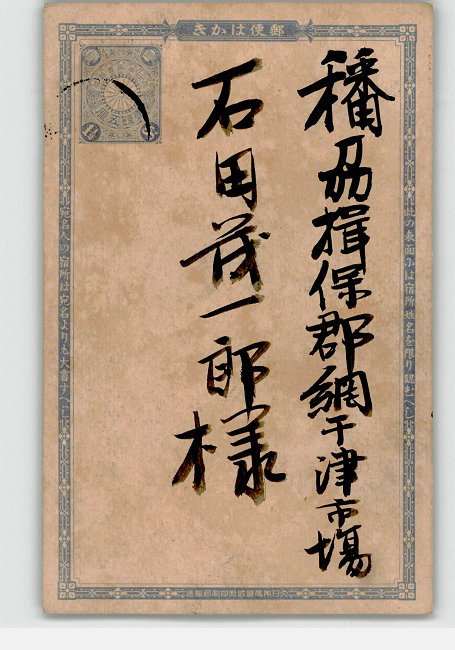 郵便はかき
此の表面には宿所姓名を限り認むへし
播刕揖保郡網干津市場
石田茂一郎様
宛名人の宿所は宛名よりも大書すへし
大日本帝國政府印刷局製造